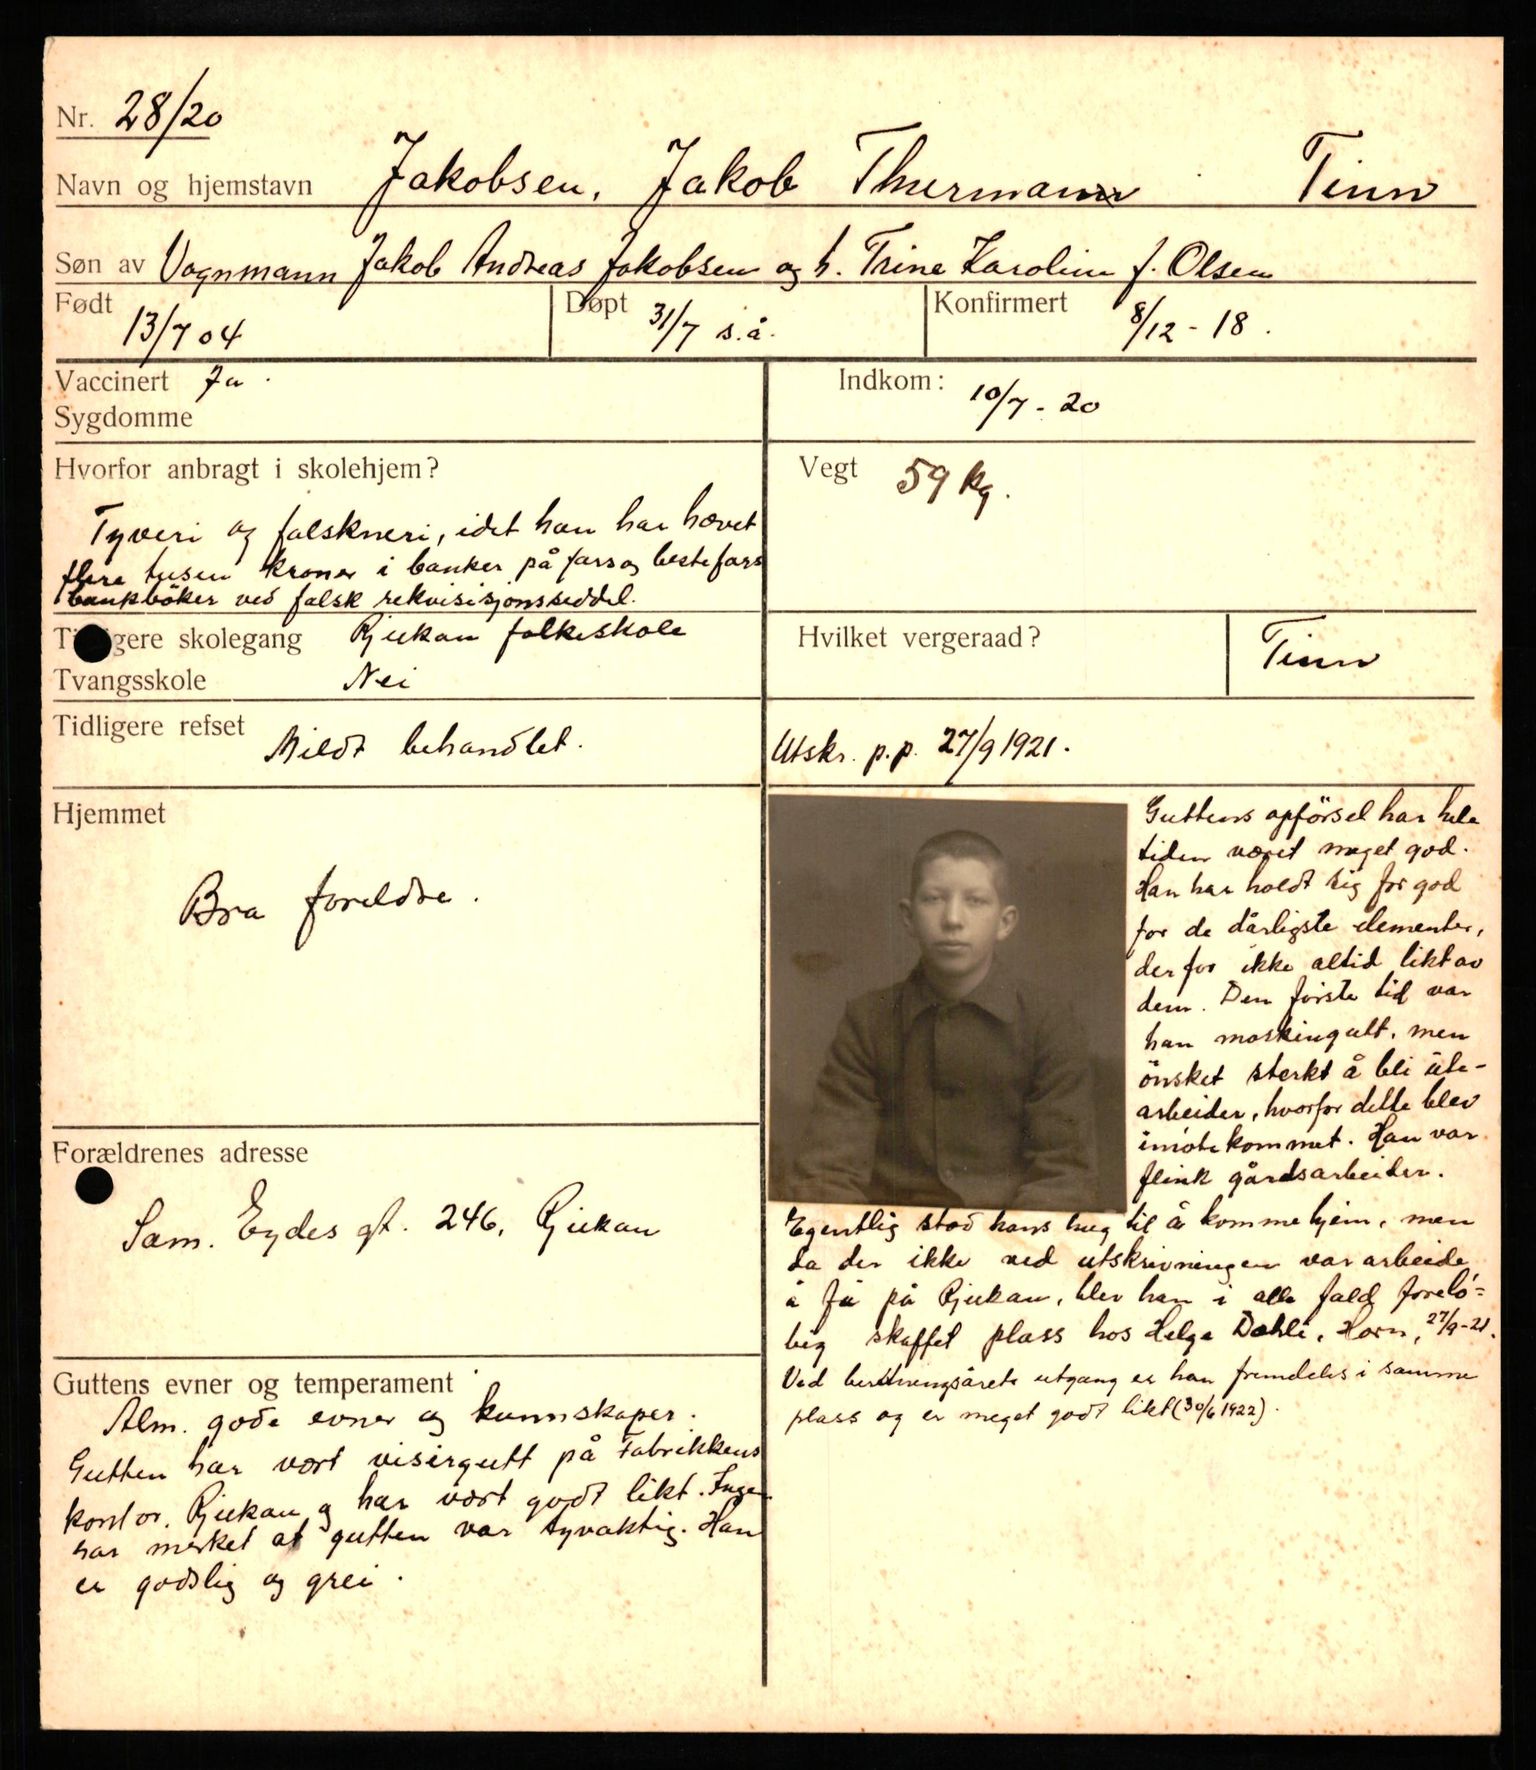 Nr. 28/20
Navn og hjemstavn Jakobsen, Jakob Thurmann Tinn
Søn av Vognmann Jakob Andreas Jakobsen og h. Trine Karoline f. Olsen
Født 13/7 04 Døpt 31/7 s.å. Konfirmert 8/12 - 18.
Vaccinert Ja.
Sygdomme
Indkom: 10/7 - 20
Hvorfor anbragt i skolehjem?
Tyveri og falskneri, idet han har hævet
flere tusen kroner i banker på fars og bestefars
bankböker ved falsk rekvisisjonsseddel.
Vegt 59 kg.
gere skolegang Rjukan folkeskole
Tvangsskole Nei
Hvilket vergeraad? Tinn
Tidligere refset Mildt behandlet.
Utskr. p.p. 27/9 1921.
Hjemmet
Bra foreldre.
Forældrenes adresse
Sam. Eydes gt. 246, Rjukan
Guttens evner og temperament
Alm. gode evner og kunnskaper.
Gutten har vært visergutt på Fabrikkens
kontor, Rjukan og har vært godt likt. Ingen
har merket at gutten var tyvaktig. Han
er godslig og grei.
Guttens opförsel har hele
tiden været meget god.
Han har holdt sig for god
for de dårligste elementer,
derfor ikke altid likt av
dem. Den förste tid var
han maskingutt, men
önsket sterkt å bli ute-
arbeider, hvorfor dette blev
imötekommet. Han var
flink gårdsarbeider.
Egentlig stod hans hug til å komme hjem, men
da der ikke ved utskrivningen var arbeide
å få på Rjukan, blev han i alle fald forelö-
big skaffet plass hos Helge Dahle, Horn, 27/9-21.
Ved beretningsårets utgang er han fremdeles i samme
plass og er meget godt likt (30/6 1922).